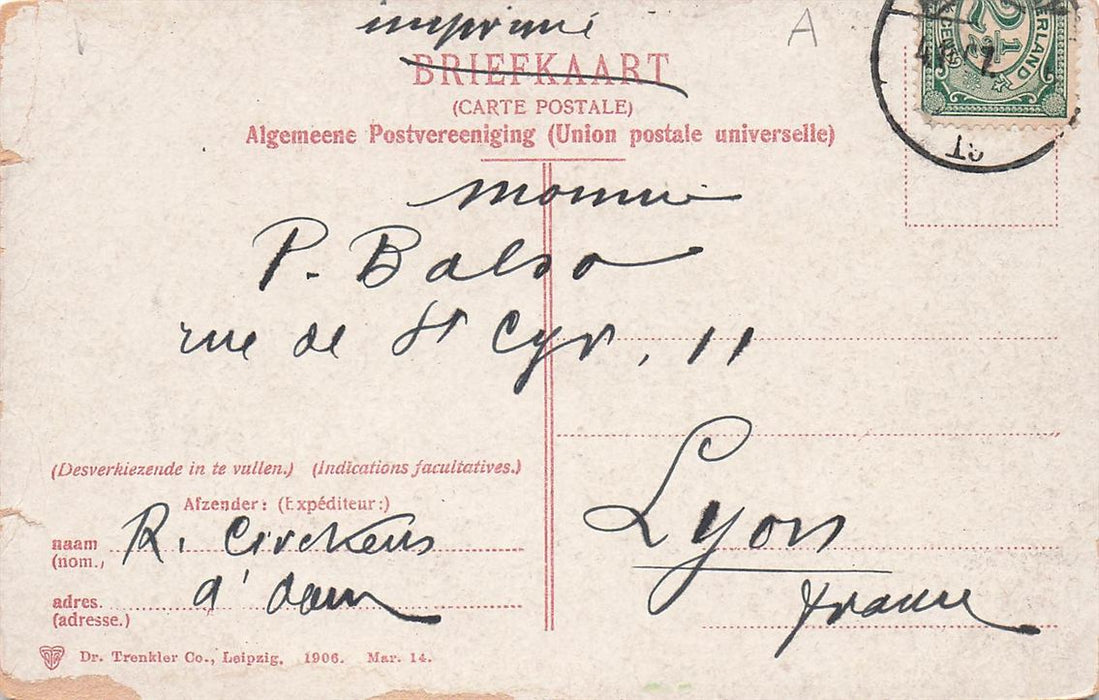 imprimé
A
BRIEFKAART
(CARTE POSTALE)
Algemeene Postvereeniging (Union postale universelle)
2½
ERLAND
P. Balso
rue de St Cyr, 11
Lyon
France
(Desverkiezende in te vullen.) (Indications facultatives.)
Afzender: (Expéditeur:)
naam R. Circkens
(nom.)
adres. a'dam
(adresse.)
Dr. Trenkler Co., Leipzig. 1906. Mar. 14.